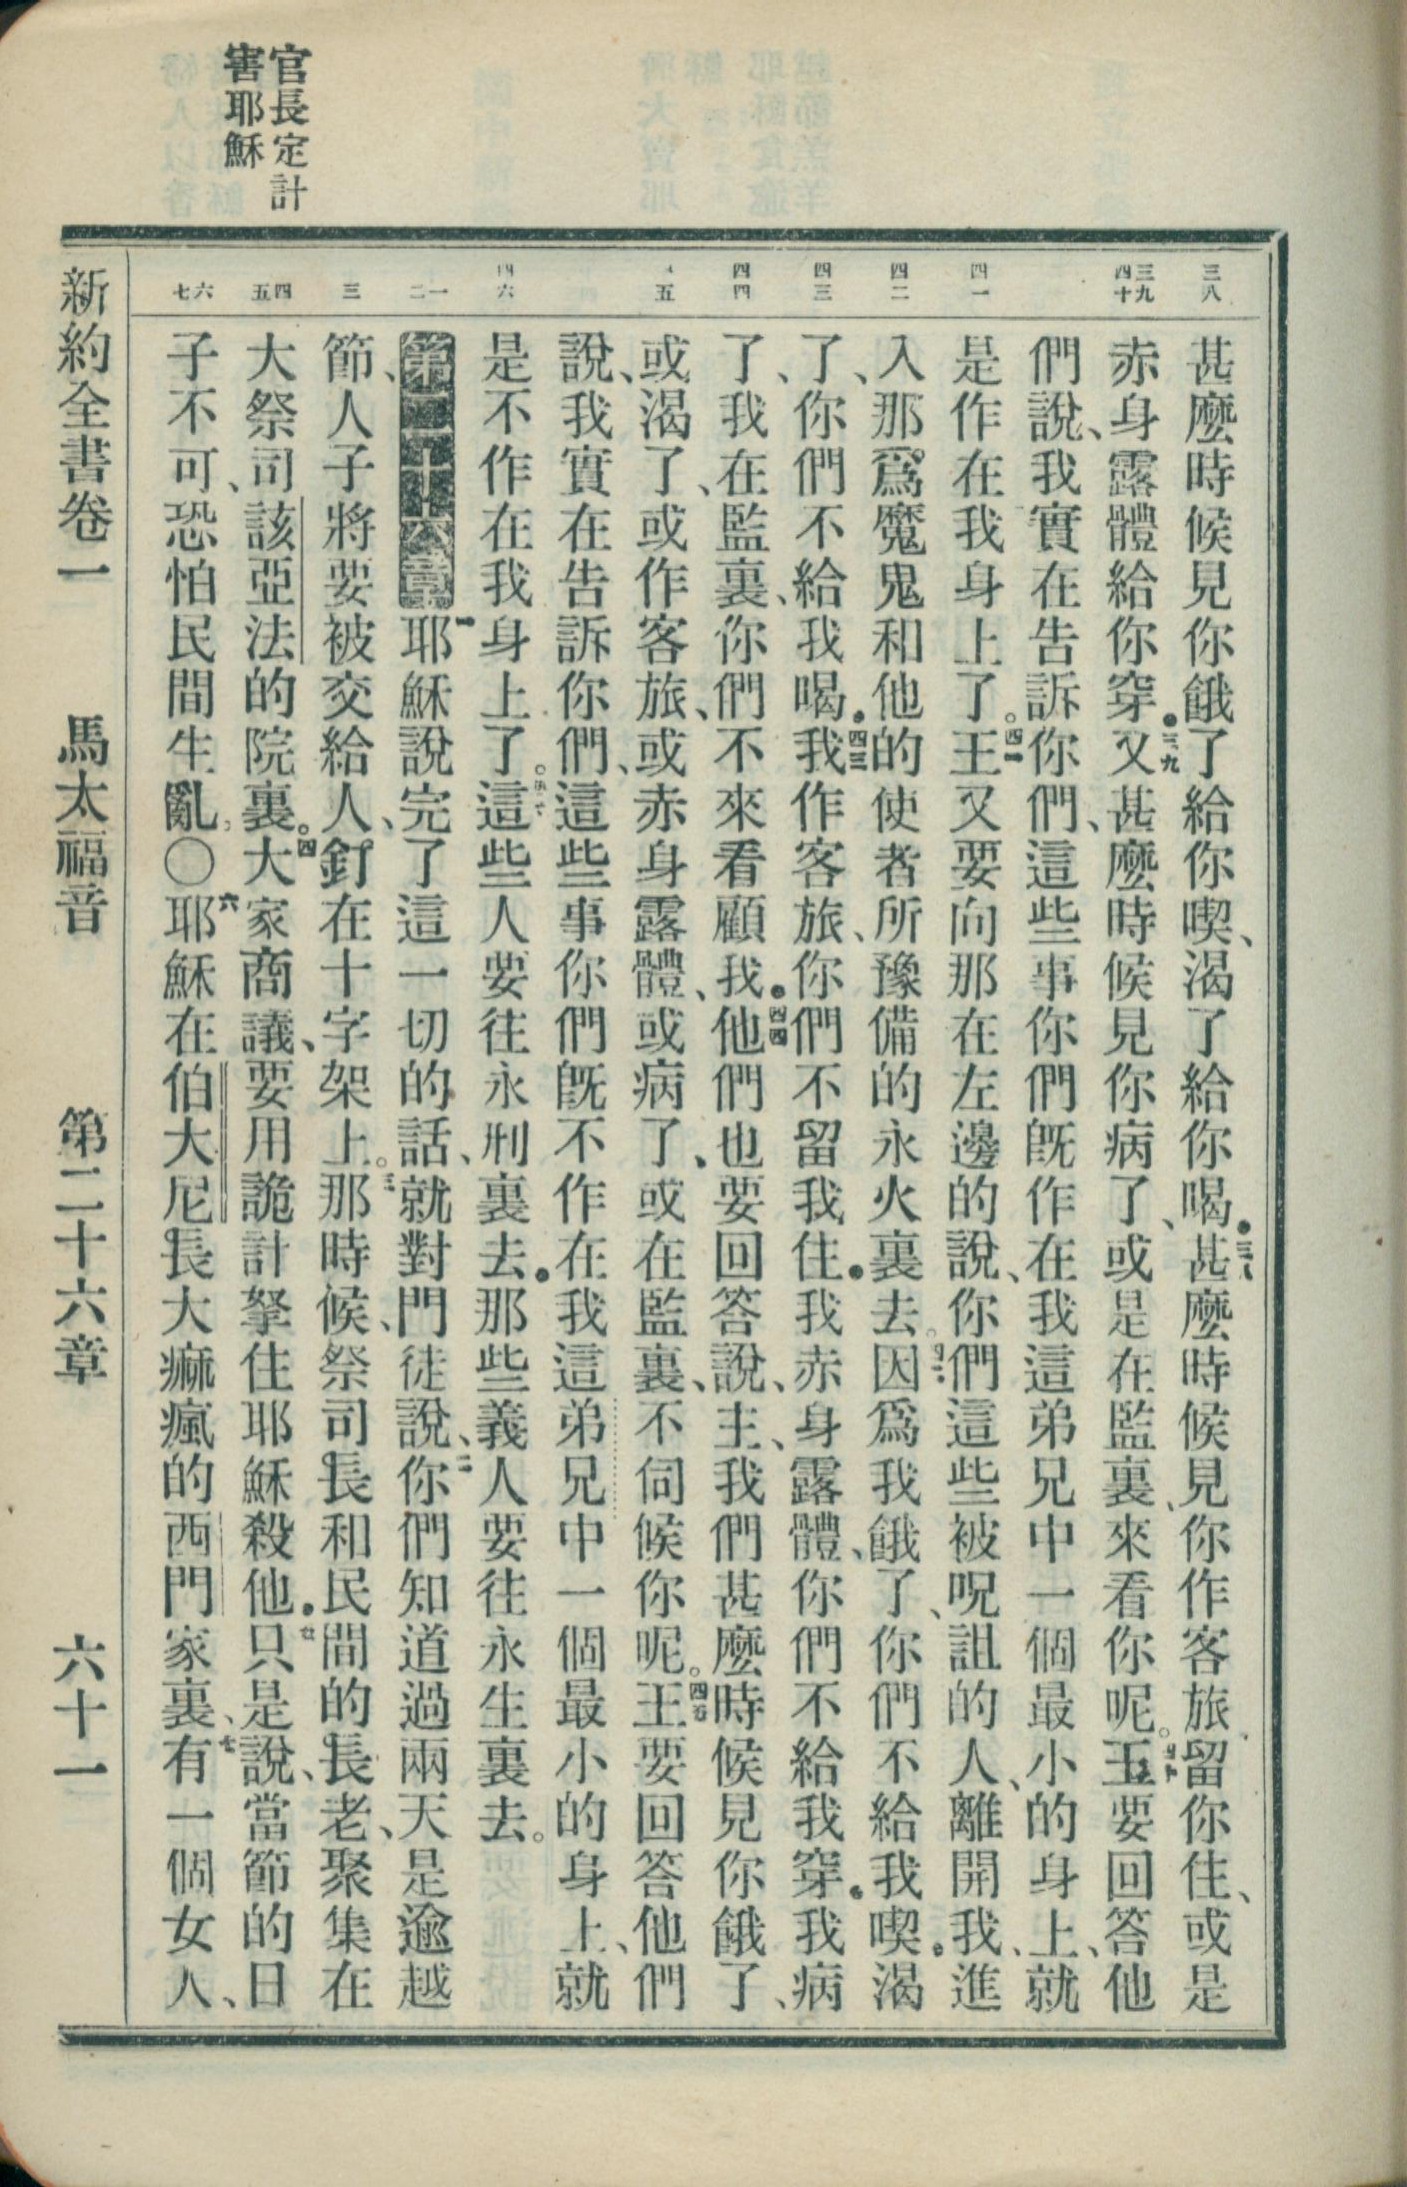 官長定計
害耶穌
三八
三九
四十
四一
四二
四三
四四
五
四六
一
二
三
四
五
六
七
甚麼時候見你餓了給你喫、渴了給你喝。三八甚麼時候見你作客旅留你住、或是
赤身露體給你穿。三九又甚麼時候見你病了、或是在監裏、來看你呢。四十王要回答他
們說、我實在告訴你們、這些事你們旣作在我這弟兄中一個最小的身上、就
是作在我身上了。四一王又要向那在左邊的說、你們這些被呪詛的人、離開我、進
入那爲魔鬼和他的使者所豫備的永火裏去。四二因爲我餓了、你們不給我喫。渴
了、你們不給我喝。四三我作客旅、你們不留我住。我赤身露體、你們不給我穿。我病
了、我在監裏、你們不來看顧我。四四他們也要回答說、主、我們甚麼時候見你餓了、
或渴了、或作客旅、或赤身露體、或病了、或在監裏、不伺候你呢。四五王要回答他們
說、我實在告訴你們、這些事你們旣不作在我這弟兄中一個最小的身上、就
是不作在我身上了。四六這些人要往永刑裏去。那些義人要往永生裏去。
第二十六章 一耶穌說完了這一切的話、就對門徒說、二你們知道過兩天是逾越
節、人子將要被交給人、釘在十字架上。三那時候、祭司長和民間的長老、聚集在
大祭司該亞法的院裏。四大家商議、要用詭計拏住耶穌殺他。五只是說、當節的日
子不可、恐怕民間生亂。〇六耶穌在伯大尼長大痲瘋的西門家裏、七有一個女人、
新約全書卷一 馬太福音 第二十六章 六十一